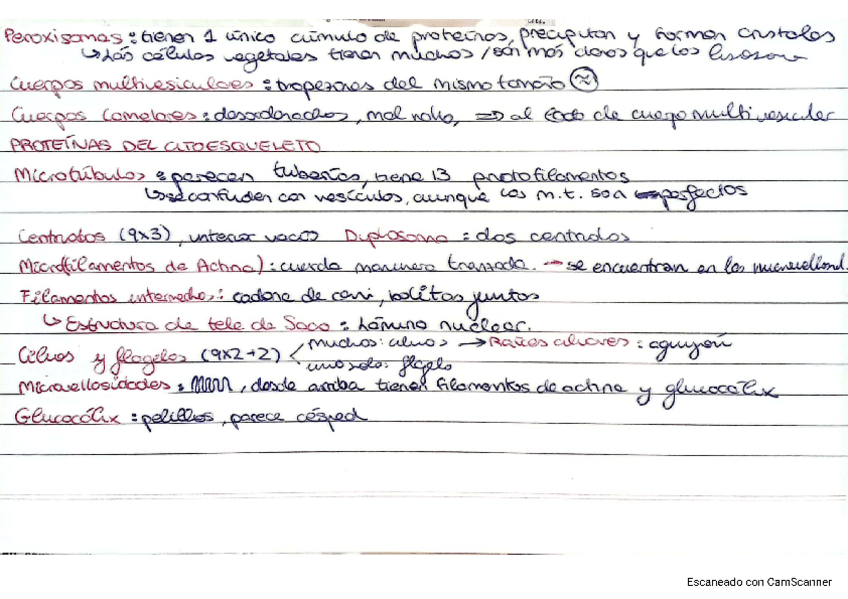 Peroxisomas: tienen 1 único cúmulo de proteínas, precipitan y forman cristales
↳ Las células vegetales tienen muchos / son más claros que los lisosom
Cuerpos multivesiculares: trapezones del mismo tamaño ≈
Cuerpos lamelares: desordenados, mal rollo, ⇒ al lado de cuerpo multivesicular
PROTEÍNAS DEL CITOESQUELETO
Microtúbulos: parecen tuberías, tiene 13 protofilamentos
↳ se confunden con vesículas, aunque los m.t. son perfectos
Centriolos (9x3), interior vacío Diplosoma: dos centriolos
Microfilamentos de Actina): cuerda marinera trenzada. → se encuentran en las microvellosid.
Filamentos intermedios: cadena de , bolitas juntas
↳ Estructura de tela de Saco: Lámina nuclear.
Cilios y flagelos (9x2+2) < muchos: cilios → Raíces ciliares: aguijón
uno solo: flagelo
Microvellosidades: , desde arriba tienen filamentos de actina y glucocálix
Glucocálix: pelillos, parece césped
Escaneado con CamScanner